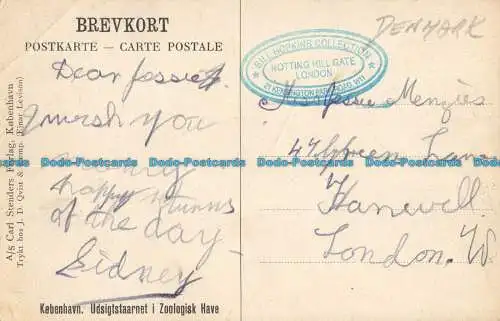 BREVKORT
POSTKARTE — CARTE POSTALE
DENMARK
BILL HOPKINS COLLECTION
NOTTING HILL GATE
LONDON
21 KENSINGTON PARK ROAD W11
Dear Jessie
I wish you
many
happy returns
of the day
Sidney
Jessie Menzies
47 Green Lane
Hanwell
London. W.
A/s Carl Stenders Forlag, København
Trykt hos J. D. Qvist & Komp. (Einar Levison)
København. Udsigtstaarnet i Zoologisk Have
Dodo-Postcards Dodo-Postcards Dodo-Postcards Dodo-Postcards Dodo-Postcards